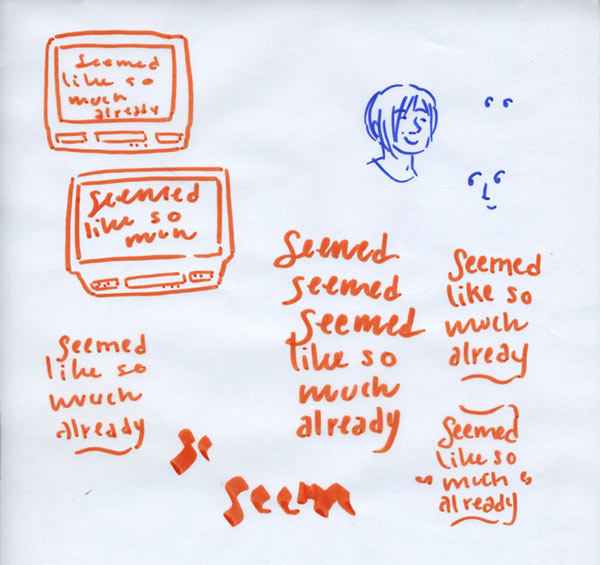 Seemed
like so
much
already
Seemed
like so
much
Seemed
seemed
Seemed
like so
much
already
Seemed
like so
much
already
Seemed
like so
much
already
Seemed
like so
much
already
S
Seem